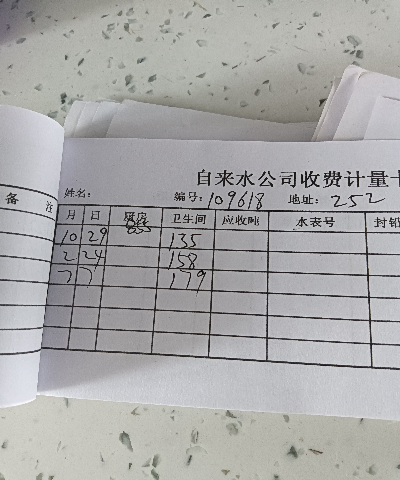 自来水公司收费计量卡
备 注
姓名: 编号: 109618 地址: 252
月 日 厨房 卫生间 应收吨 水表号 封铅
10 29 135
2 24 158
7 7 179